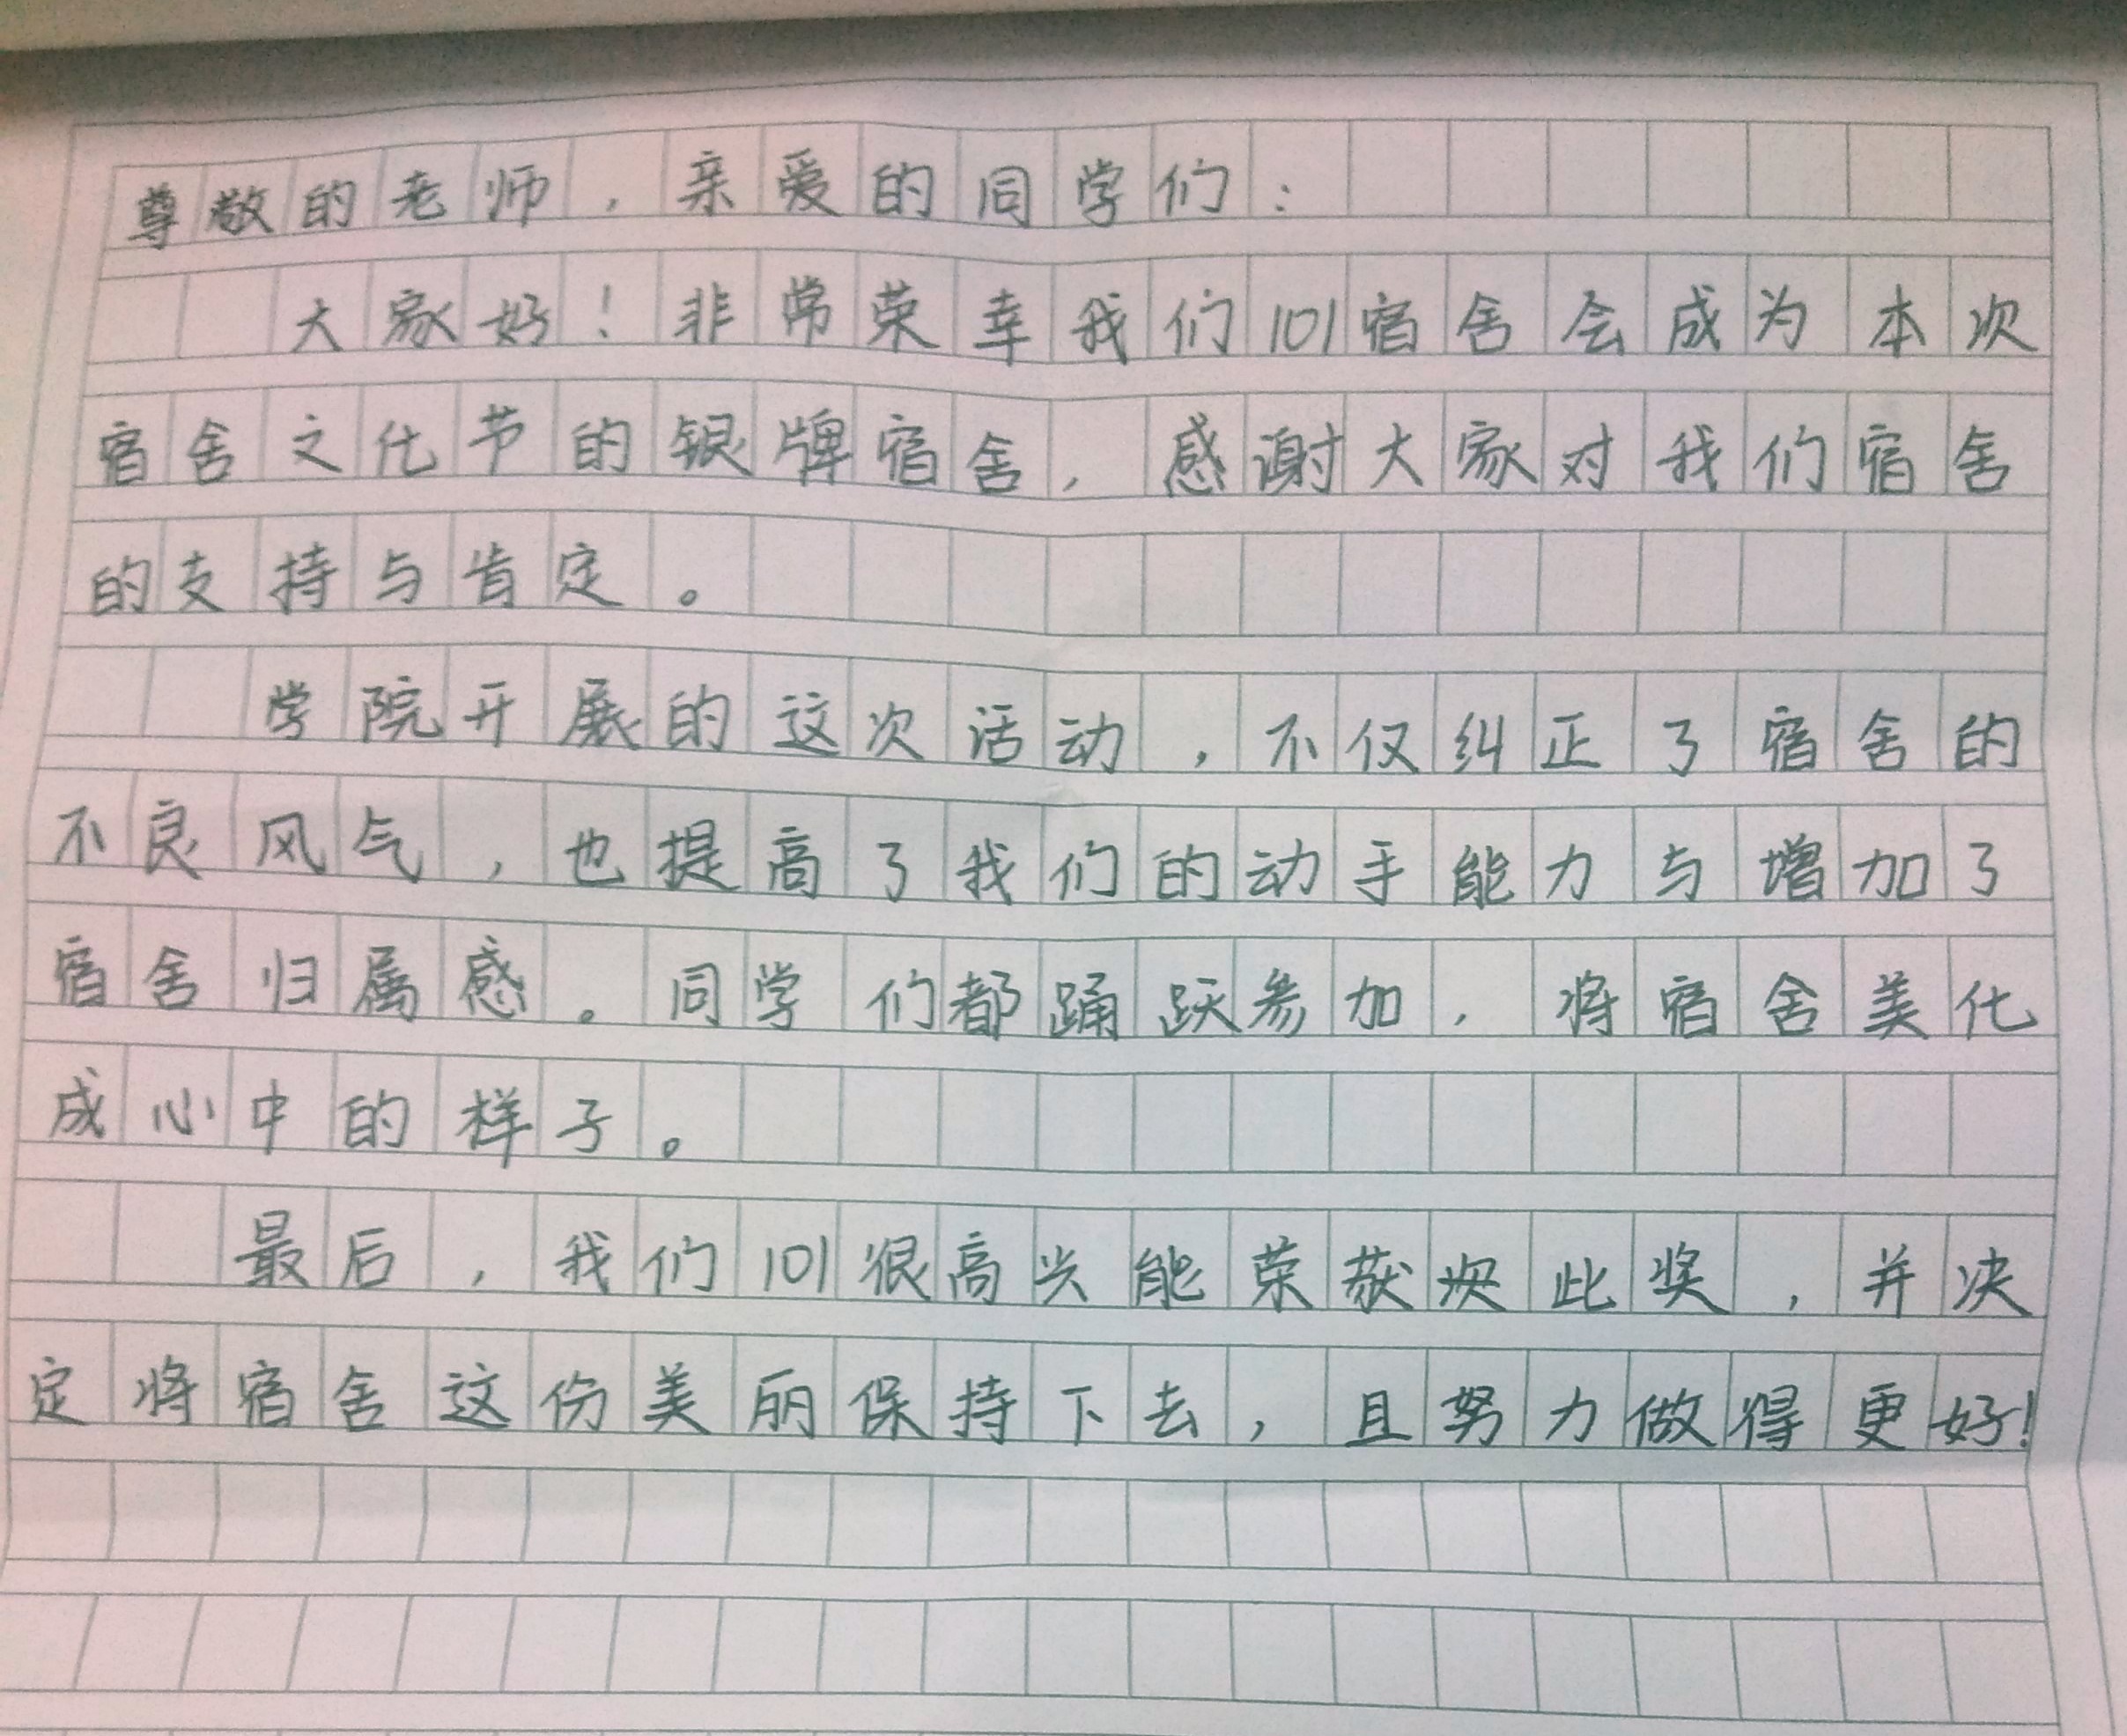 尊敬的老师，亲爱的同学们：
大家好！非常荣幸我们101宿舍会成为本次
宿舍文化节的银牌宿舍，感谢大家对我们宿舍
的支持与肯定。
学院开展的这次活动，不仅纠正了宿舍的
不良风气，也提高了我们的动手能力与增加了
宿舍归属感。同学们都踊跃参加，将宿舍美化
成心中的样子。
最后，我们101很高兴能荣获此奖，并决
定将宿舍这份美丽保持下去，且努力做得更好！